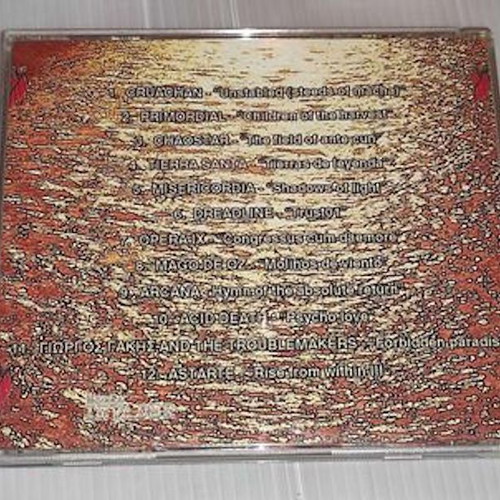 1. CRUACHAN - "Unstabled (steeds of macha)"
2. PRIMORDIAL - "Children of the harvest"
3. CHAOSTAR - "The field of ante cun"
4. TIERRA SANTA - "Tierras de leyenda"
5. MISERICORDIA - "Shadows of light"
6. DREADLINE - "Trust01"
7. OPERA IX - "Congressus cum
8. MAGO DE OZ - "Molinos de viento"
9. ARCANA - Hymn of the absolute return"
10. ACID DEATH - "Psycho love"
11. ΓΙΩΡΓΟΣ ΓΑΚΗΣ AND THE TROUBLEMAKERS - "Forbidden paradis
12. ASTARTE - "Rise from within III